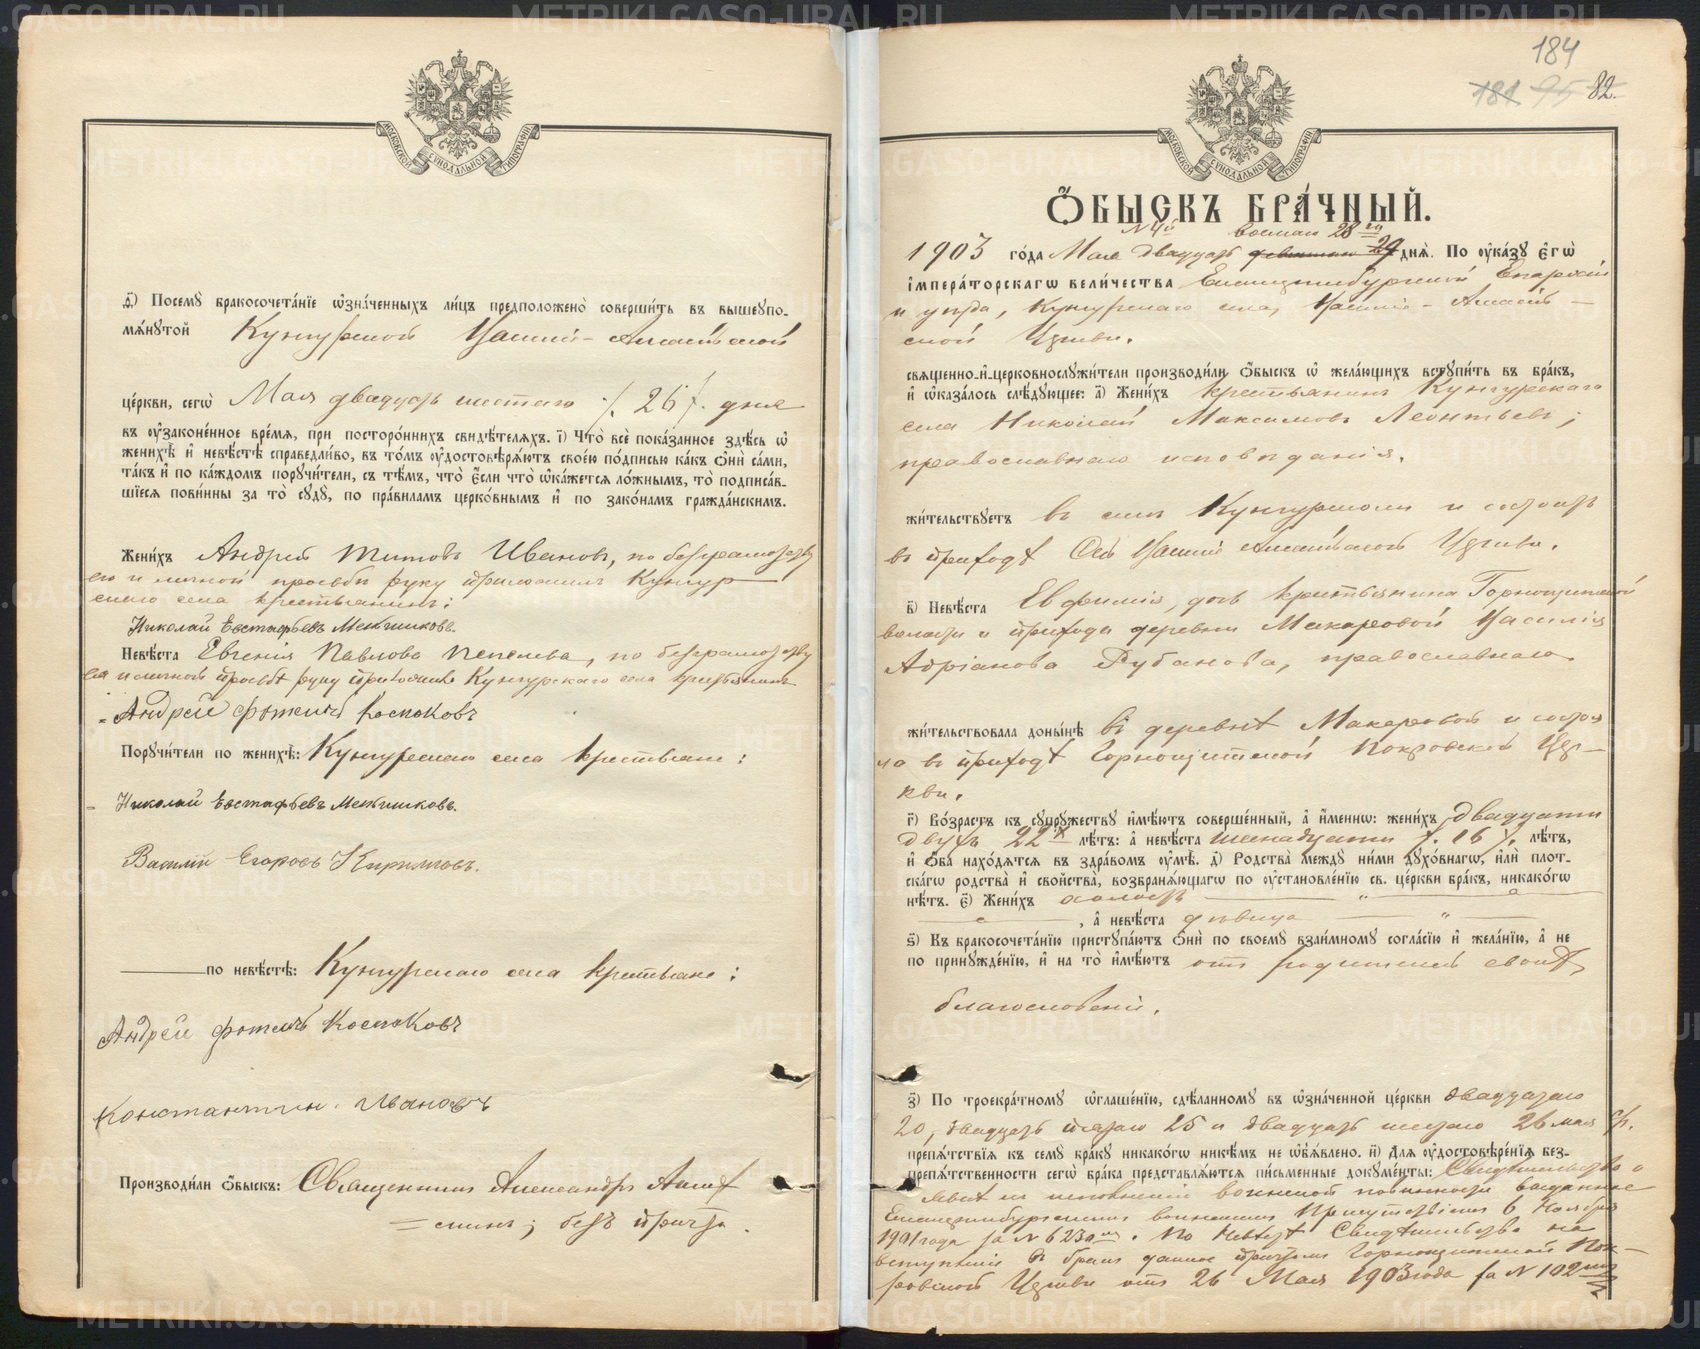 МОСКОВСКОЙ СУНОДАЛЬНОЙ ТИПОГРАФІИ
д҃) Посему бракосочета́нїе ѡ҆зна́ченныхъ ли́цъ предположено̀ соверши́ть въ вышеупо-
мѧ́нутой Кунгурской Спасской
це́ркви, сегѡ̀ Мая двадцать шестаго /. 26 /. дня
въ ᲂу҆зако́ненное вре́мѧ, при посторо́ннихъ свидѣ́телѧхъ. і҃) Что̀ всѐ пока́занное здѣ́сь ѡ҆
женихѣ̀ и҆ невѣ́стѣ справедли́во, въ то́мъ ᲂу҆достовѣрѧ́ютъ свое́ю по́дписью ка́къ ѻ҆нѝ са́ми,
та́къ и҆ по ка́ждомъ поручи́тели, съ тѣ́мъ, что̀ є҆́сли что̀ ѡ҆ка́жется ло́жнымъ, то̀ подписа́в-
шїесѧ пови́нны за то̀ суду̀, по пра́виламъ церко́внымъ и҆ по зако́намъ гражда́нскимъ.
Жени́хъ Андрей Титовъ Ивановъ, по безграмотству
его и личной просьбѣ руку приложилъ Кунгур
скаго села крестьянинъ:
Николай Евстафьевъ Меньшиковъ.
Невѣ́ста Евгенія Павлова Пепелева, по безграмотству
ея и личной просьбѣ руку приложилъ Кунгурскаго села крестьянинъ
Андрей
Поручи́тели по женихѣ̀: Кунгурскаго села крестьяне:
Николай Евстафьевъ Меньшиковъ.
Василій Егоровъ
по невѣ́стѣ: Кунгурскаго села крестьяне:
Андрей
Константин. Ивановъ
Производи́ли ѻ҆́быскъ: Священникъ Александръ
; безъ причта.
184
181 95 82.
МОСКОВСКОЙ СУНОДАЛЬНОЙ ТИПОГРАФІИ
Ѻ҆́БЫСКЪ БРА́ЧНЫЙ.
N 4й восьмаго 28го
1903 го́да Мая двадцать девятаго 29 днѧ̀. По ᲂу҆ка́зу є҆гѡ̀
і҆мпера́торскагѡ вели́чества Екатеринбургской Епархіи
и уѣзда, Кунгурскаго села,
ской Церкви.
свѧще́нно-и҆-церковнослужи́тели производи́ли ѻ҆́быскъ ѡ҆ жела́ющихъ вступи́ть въ бра́къ,
и҆ ѡ҆каза́лось слѣ́дующее: а҃) Жени́хъ крестьянинъ Кунгурскаго
села Николай Максимовъ Леонтьевъ;
православнаго исповѣданія.
жи́тельствуетъ въ селѣ Кунгурскомъ и состоитъ
въ приходѣ Церкви.
в҃) Невѣ́ста Евфимія, дочь крестьянина Горнощитской
волости и прихода деревни Макаровой Василія
Адріанова Рубанова, православнаго
жи́тельствовала доны́нѣ въ деревнѣ Макаровой и состоя
ла въ приходѣ Горнощитской Покровской Цер-
кви.
г҃) Во́зрастъ къ супру́жеству и҆мѣ́ютъ соверше́нный, а҆ и҆́меннѡ: жени́хъ двадцати
двухъ 22х лѣ́тъ: а҆ невѣ́ста шенадцати /. 16 /. лѣ́тъ,
и҆ ѻ҆́ба нахо́дѧтсѧ въ здра́вомъ ᲂу҆мѣ̀. д҃) Родства̀ ме́жду ни́ми дꙋхо́внагѡ, и҆лѝ плот-
ска́гѡ родства̀ и҆ сво́йства, возбранѧ́ющагѡ по ᲂу҆становле́нїю св. це́ркви бра́къ, никако́гѡ
нѣ́тъ. є҃) Жени́хъ холостъ
, а҆ невѣ́ста дѣвица
ѕ҃) Къ бракосочета́нїю приступа́ютъ ѻ҆нѝ по своему̀ взаи́мному согла́сїю и҆ жела́нїю, а҆ не
по принужде́нїю, и҆ на то̀ и҆мѣ́ютъ отъ родителей своихъ
благословеніе.
з҃) По троекра́тному ѡ҆глаше́нїю, сдѣ́ланному въ ѡ҆зна́ченной це́ркви двадцатаго
20, двадцать пятаго 25 и двадцать шестаго 26 мая с/г.
препѧ́тствїѧ къ сему̀ бра́ку никако́гѡ никѣ́мъ не ѡ҆б̾ѧ́влено. и҃) Длѧ ᲂу҆достовѣре́нїѧ без-
препѧ́тственности сегѡ̀ бра́ка представлѧ́ютсѧ пи́сьменные докуме́нты: Свидѣтельство о
явкѣ къ исполненію воинской повинности выданное
Екатеринбургскимъ воинскимъ Присутствіемъ 6 Ноября
1901 года за N 623мъ. По невѣстѣ Свидѣтельство на
вступленіе въ бракъ данное причтомъ Горнощитской Пок-
ровской Церкви отъ 26 Мая 1903 года за N 102мъ
METRIKI.GASO-URAL.RU